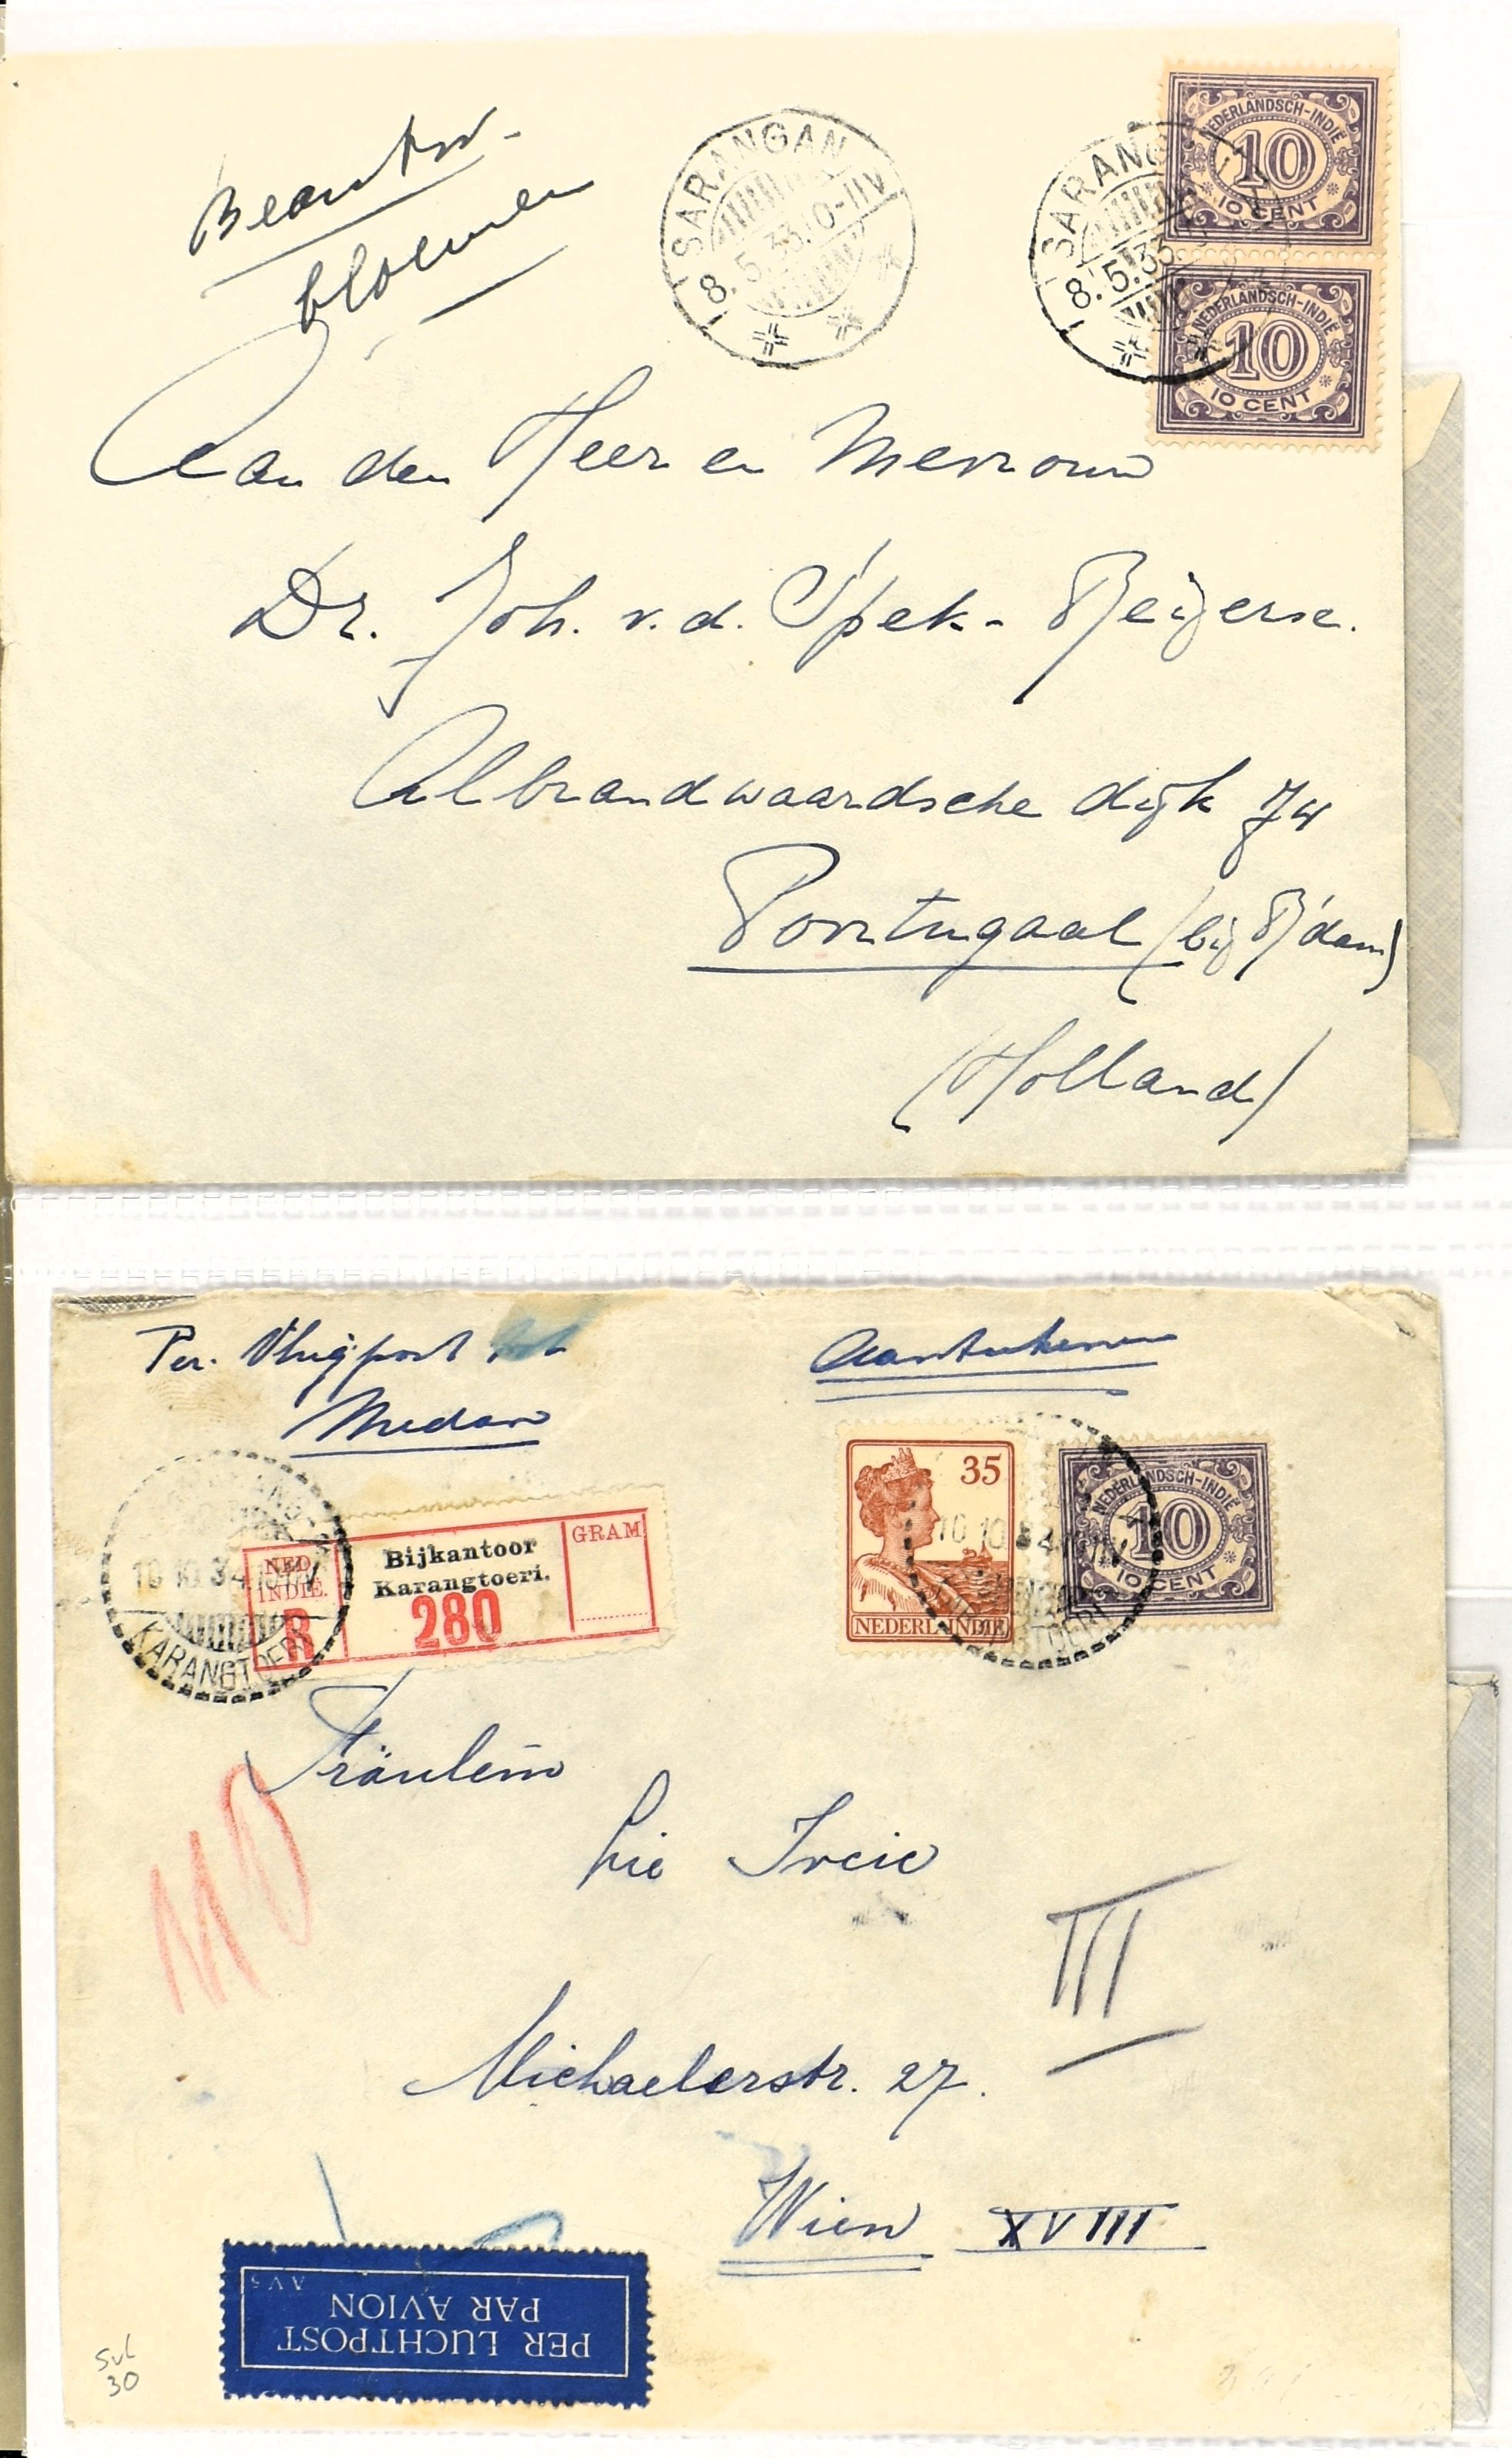 Beantw.
bloemen
SARANGAN
8.5.33.10-11V
SARANG
8.5.33
NEDERLANDSCH-INDIE
10
10 CENT
NEDERLANDSCH-INDIE
10
10 CENT
Aan den Heer en Mevrouw
Dr. Joh. v.d. Spek-
Albrandwaardsche dijk 74
Poortugaal (bij R'dam)
(Holland)
Per. Vliegpost tot
Medan
Aantekenen
NED.
INDIE.
R
Bijkantoor
Karangtoeri.
280
GRAM
10.10.34
KARANGTOERI
35
NEDERL. INDIE
NEDERLANDSCH-INDIE
10
10 CENT
10.10.34
Fräulein
Michaelerstr. 27.
III
Wien XVIII
PER LUCHTPOST
PAR AVION
30